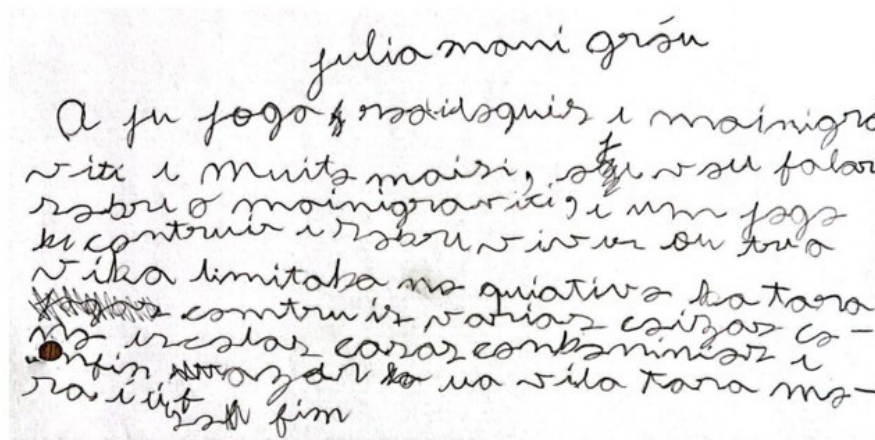 julia mani gráu
A ju joga rsaidsquis i mainigra
viti i muits maisi, sti vsu falar
ssbri o mainigraviti, i um jsgo
ki contruir i ssbri viver ou tua
vika limitaba no quiativs ba tara
contruir varias csizas cs-
ms iscslas casas cambsminiss i
fis ua vila tara ms-
ra i
fim